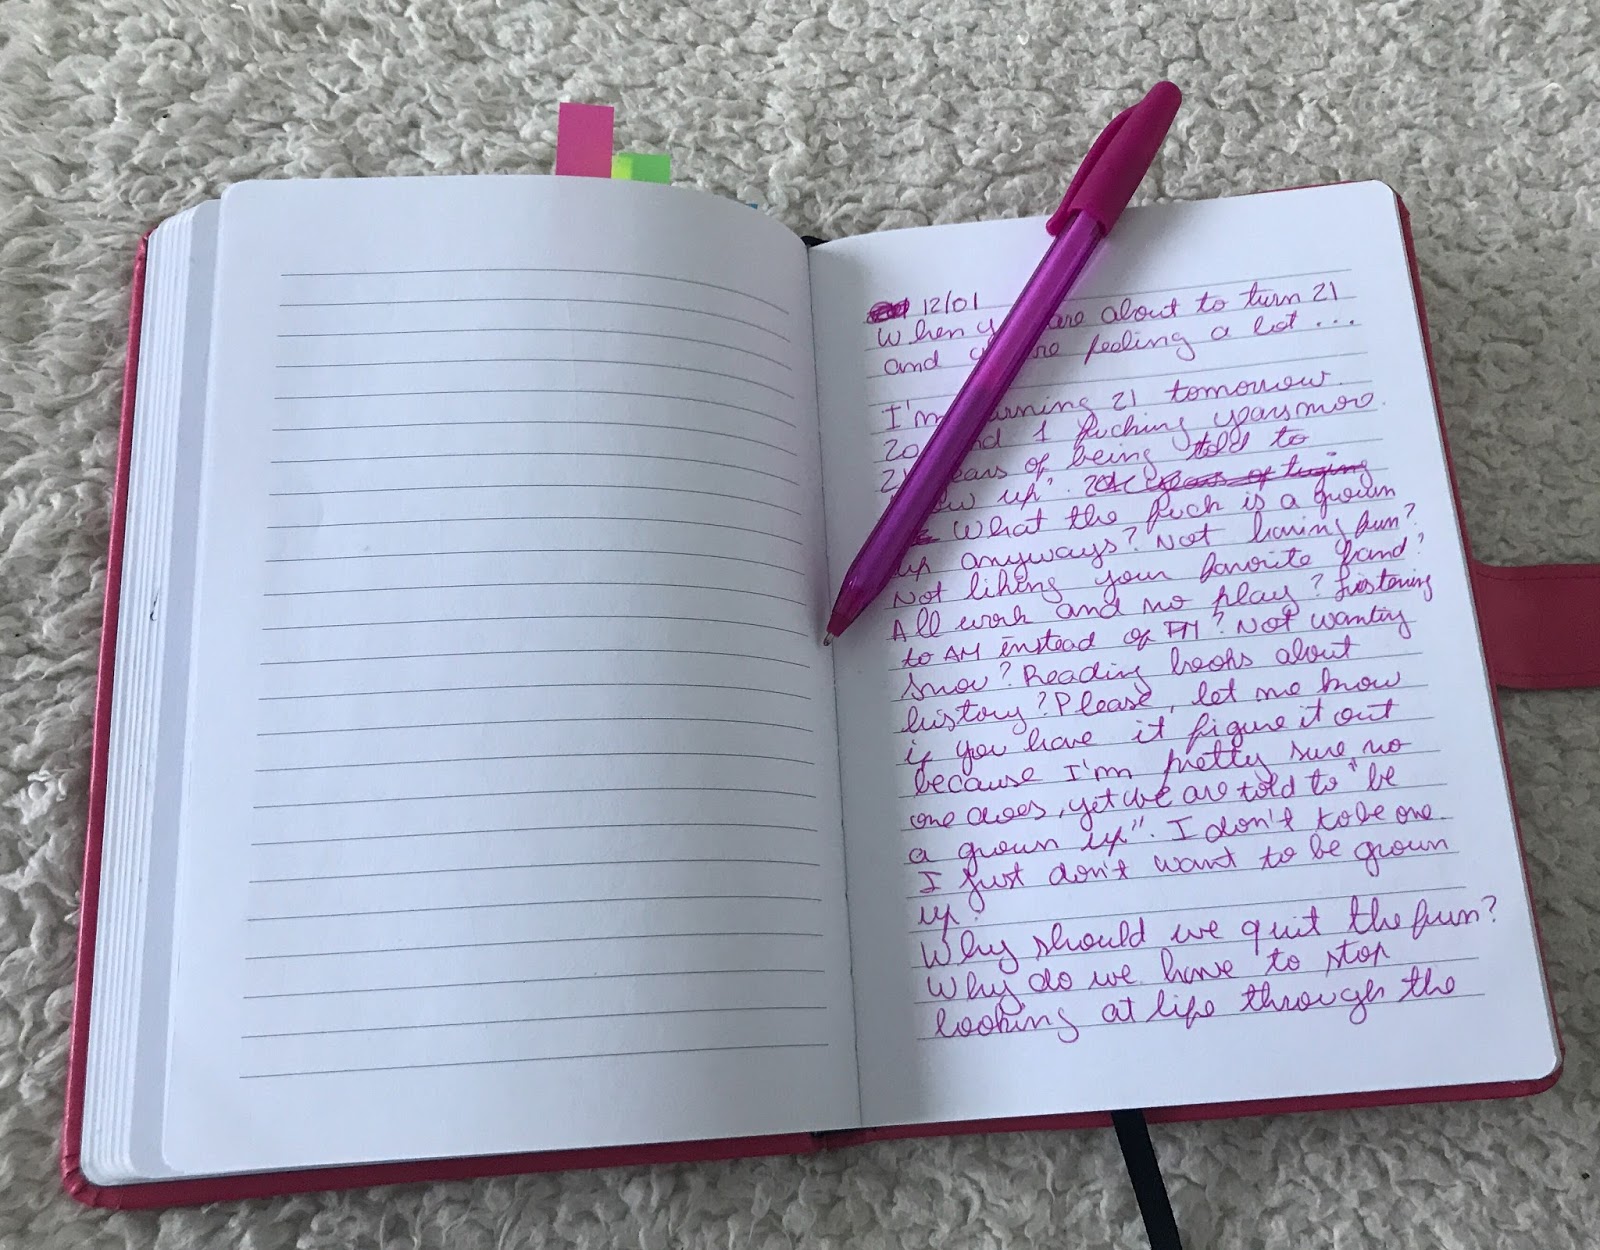 12/01
When y are about to turn 21
and feeling a lot ...
I'm urning 21 tomorrow.
20 nd 1 fucking years more.
2 ears of being told to
ow up". years of trying
What the fuck is a grown
up anyways? Not having fun?
Not liking your favorite band?
All work and no play? Listening
to AM instead of FM? Not wanting
snow? Reading books about
history? Please, let me know
if you have it figure it out
because I'm pretty sure no
one does, yet we are told to "be
a grown up". I don't to be one.
I just don't want to be grown
up.
Why should we quit the fun?
Why do we have to stop
looking at life through the